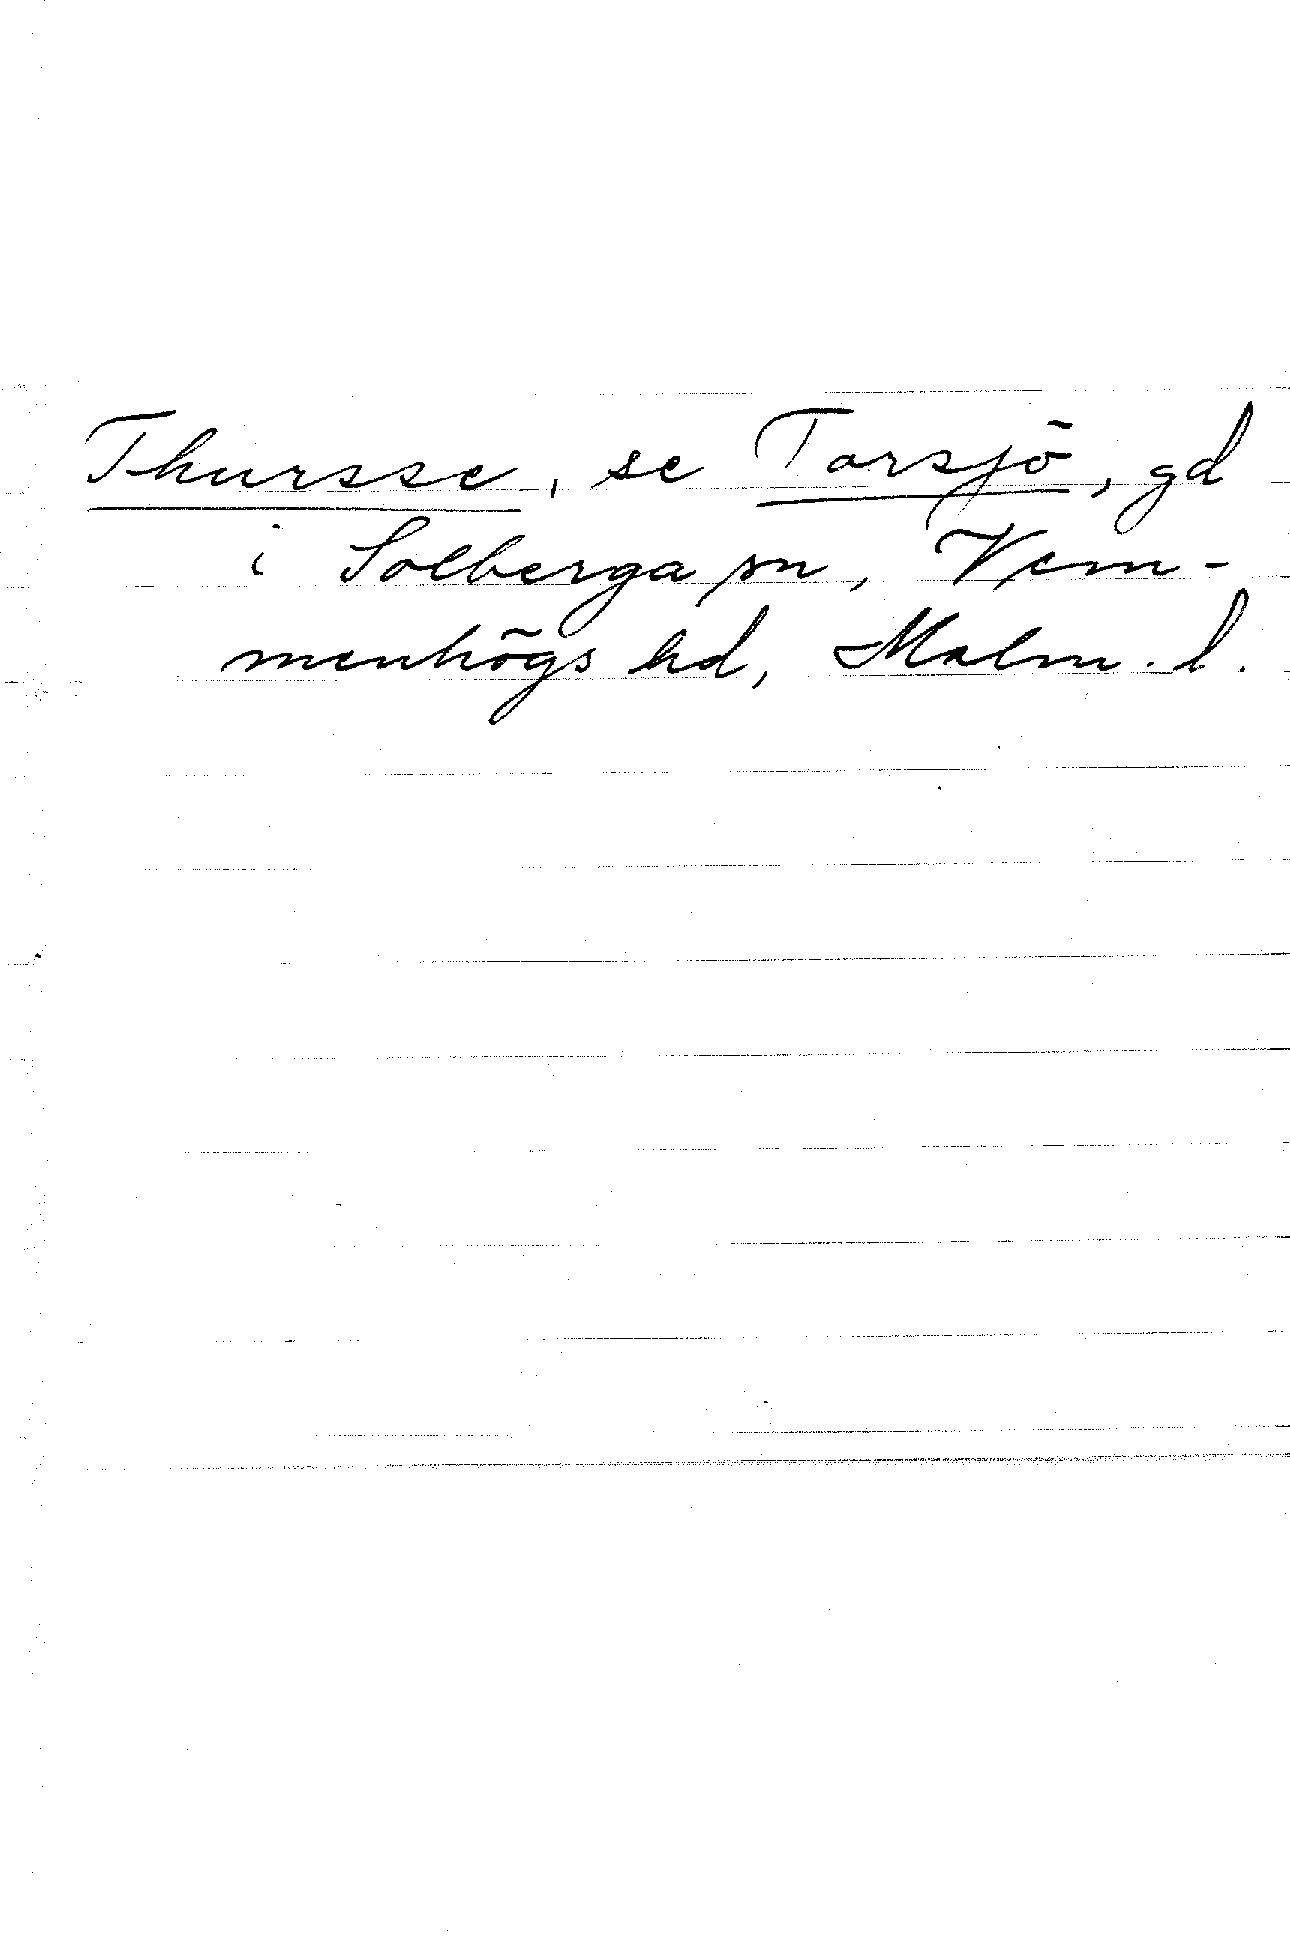 Thursse, se Torsjö, gd
i Solberga sn, Vem-
menhögs hd, Malm. l.